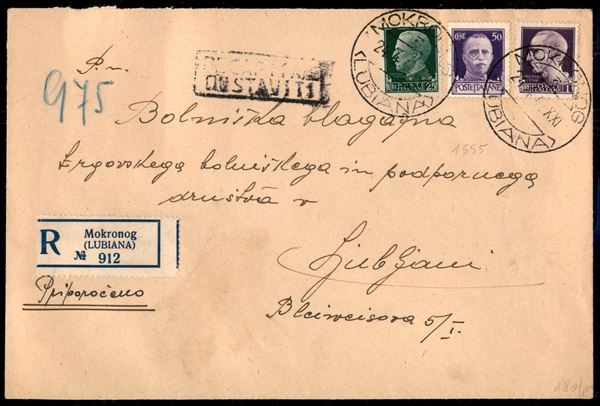 MOKRONOG
(LUBIANA)
MOKRONOG
XXI
(LUBIANA)
25
CENT. 50
POSTE ITALIANE
P. n.
DOSTAVITI
975
Bolniška blagajna
1555
trgovskega bolniškega in podpornega
društva v
R Mokronog
(LUBIANA)
№ 912
Ljubljani
Priporočeno
Bleiweisova 5/I.